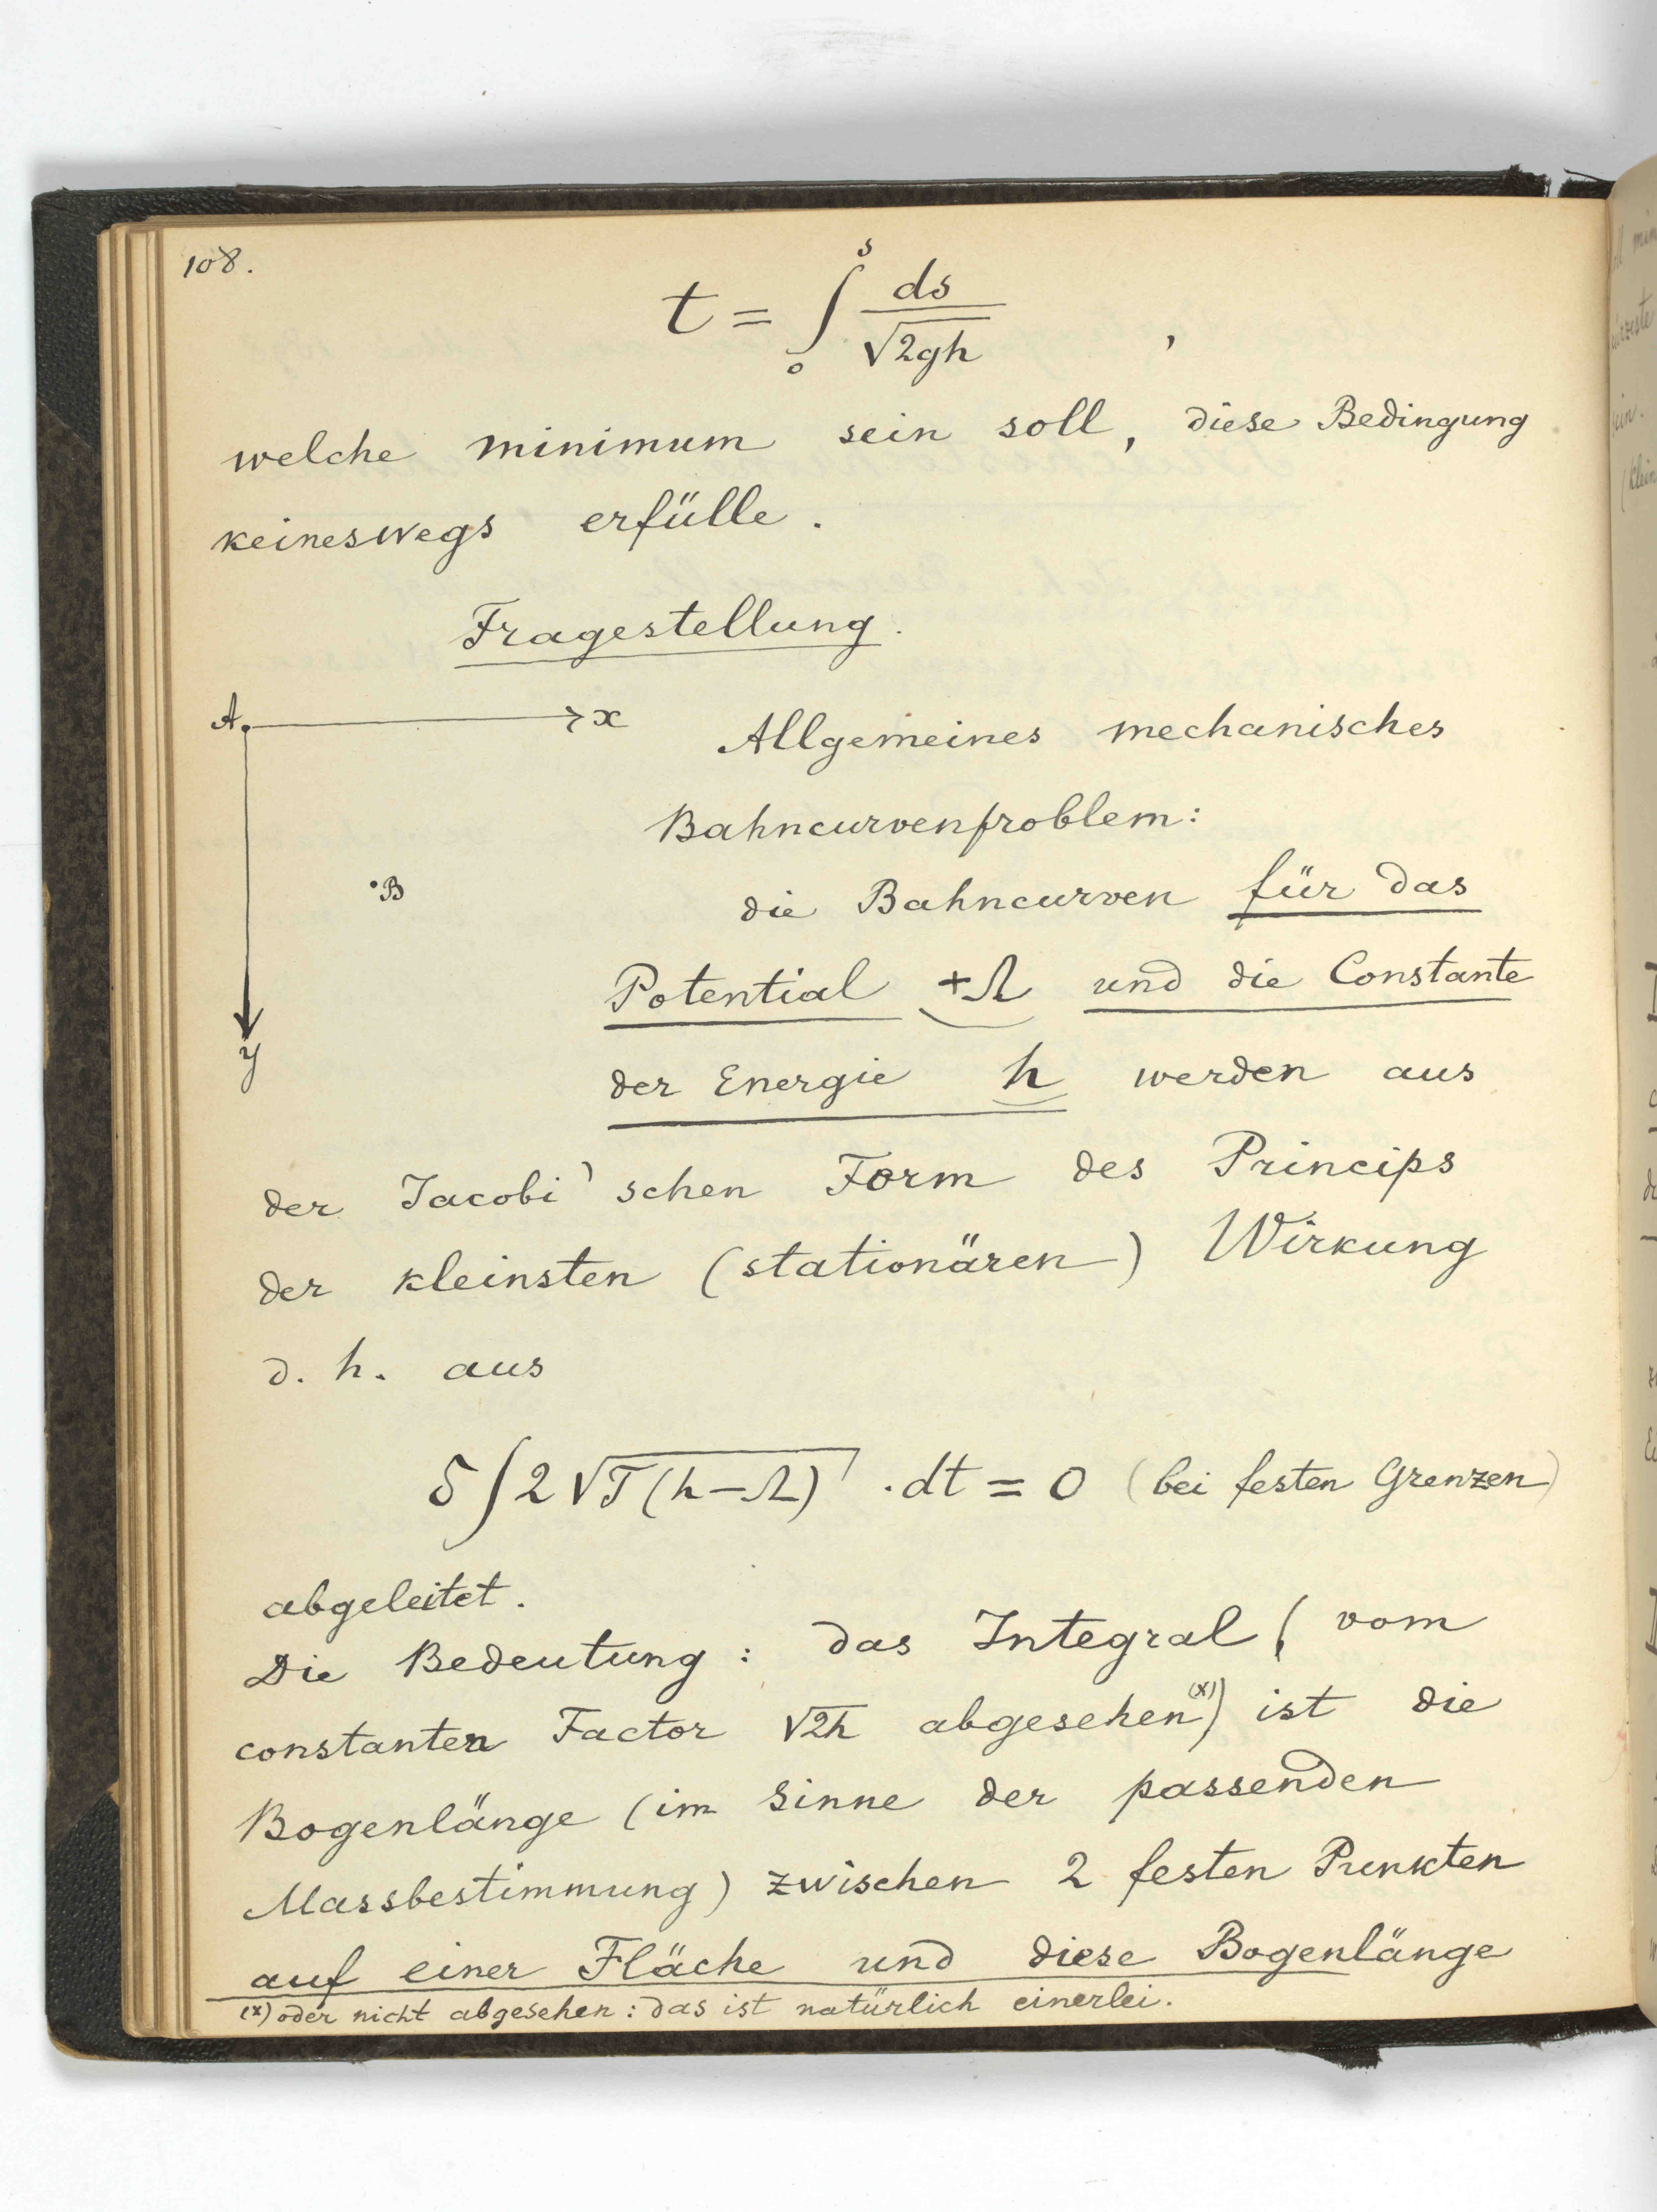 108.
t = ∫₀ˢ ds / √2gh ,
welche minimum sein soll, diese Bedingung
keineswegs erfülle.
Fragestellung.
A. x
Allgemeines mechanisches
Bahncurvenproblem:
B
die Bahncurven für das
Potential +Ω und die Constante
y
der Energie h werden aus
der Jacobi'schen Form des Princips
der kleinsten (stationären) Wirkung
d. h. aus
δ∫2√T(h-Ω) . dt = 0 (bei festen Grenzen)
abgeleitet.
Die Bedeutung: das Integral (vom
constanten Factor √2h abgesehen(x)) ist die
Bogenlänge (im Sinne der passenden
Massbestimmung) zwischen 2 festen Punkten
auf einer Fläche und diese Bogenlänge
(x) oder nicht abgesehen: das ist natürlich einerlei.